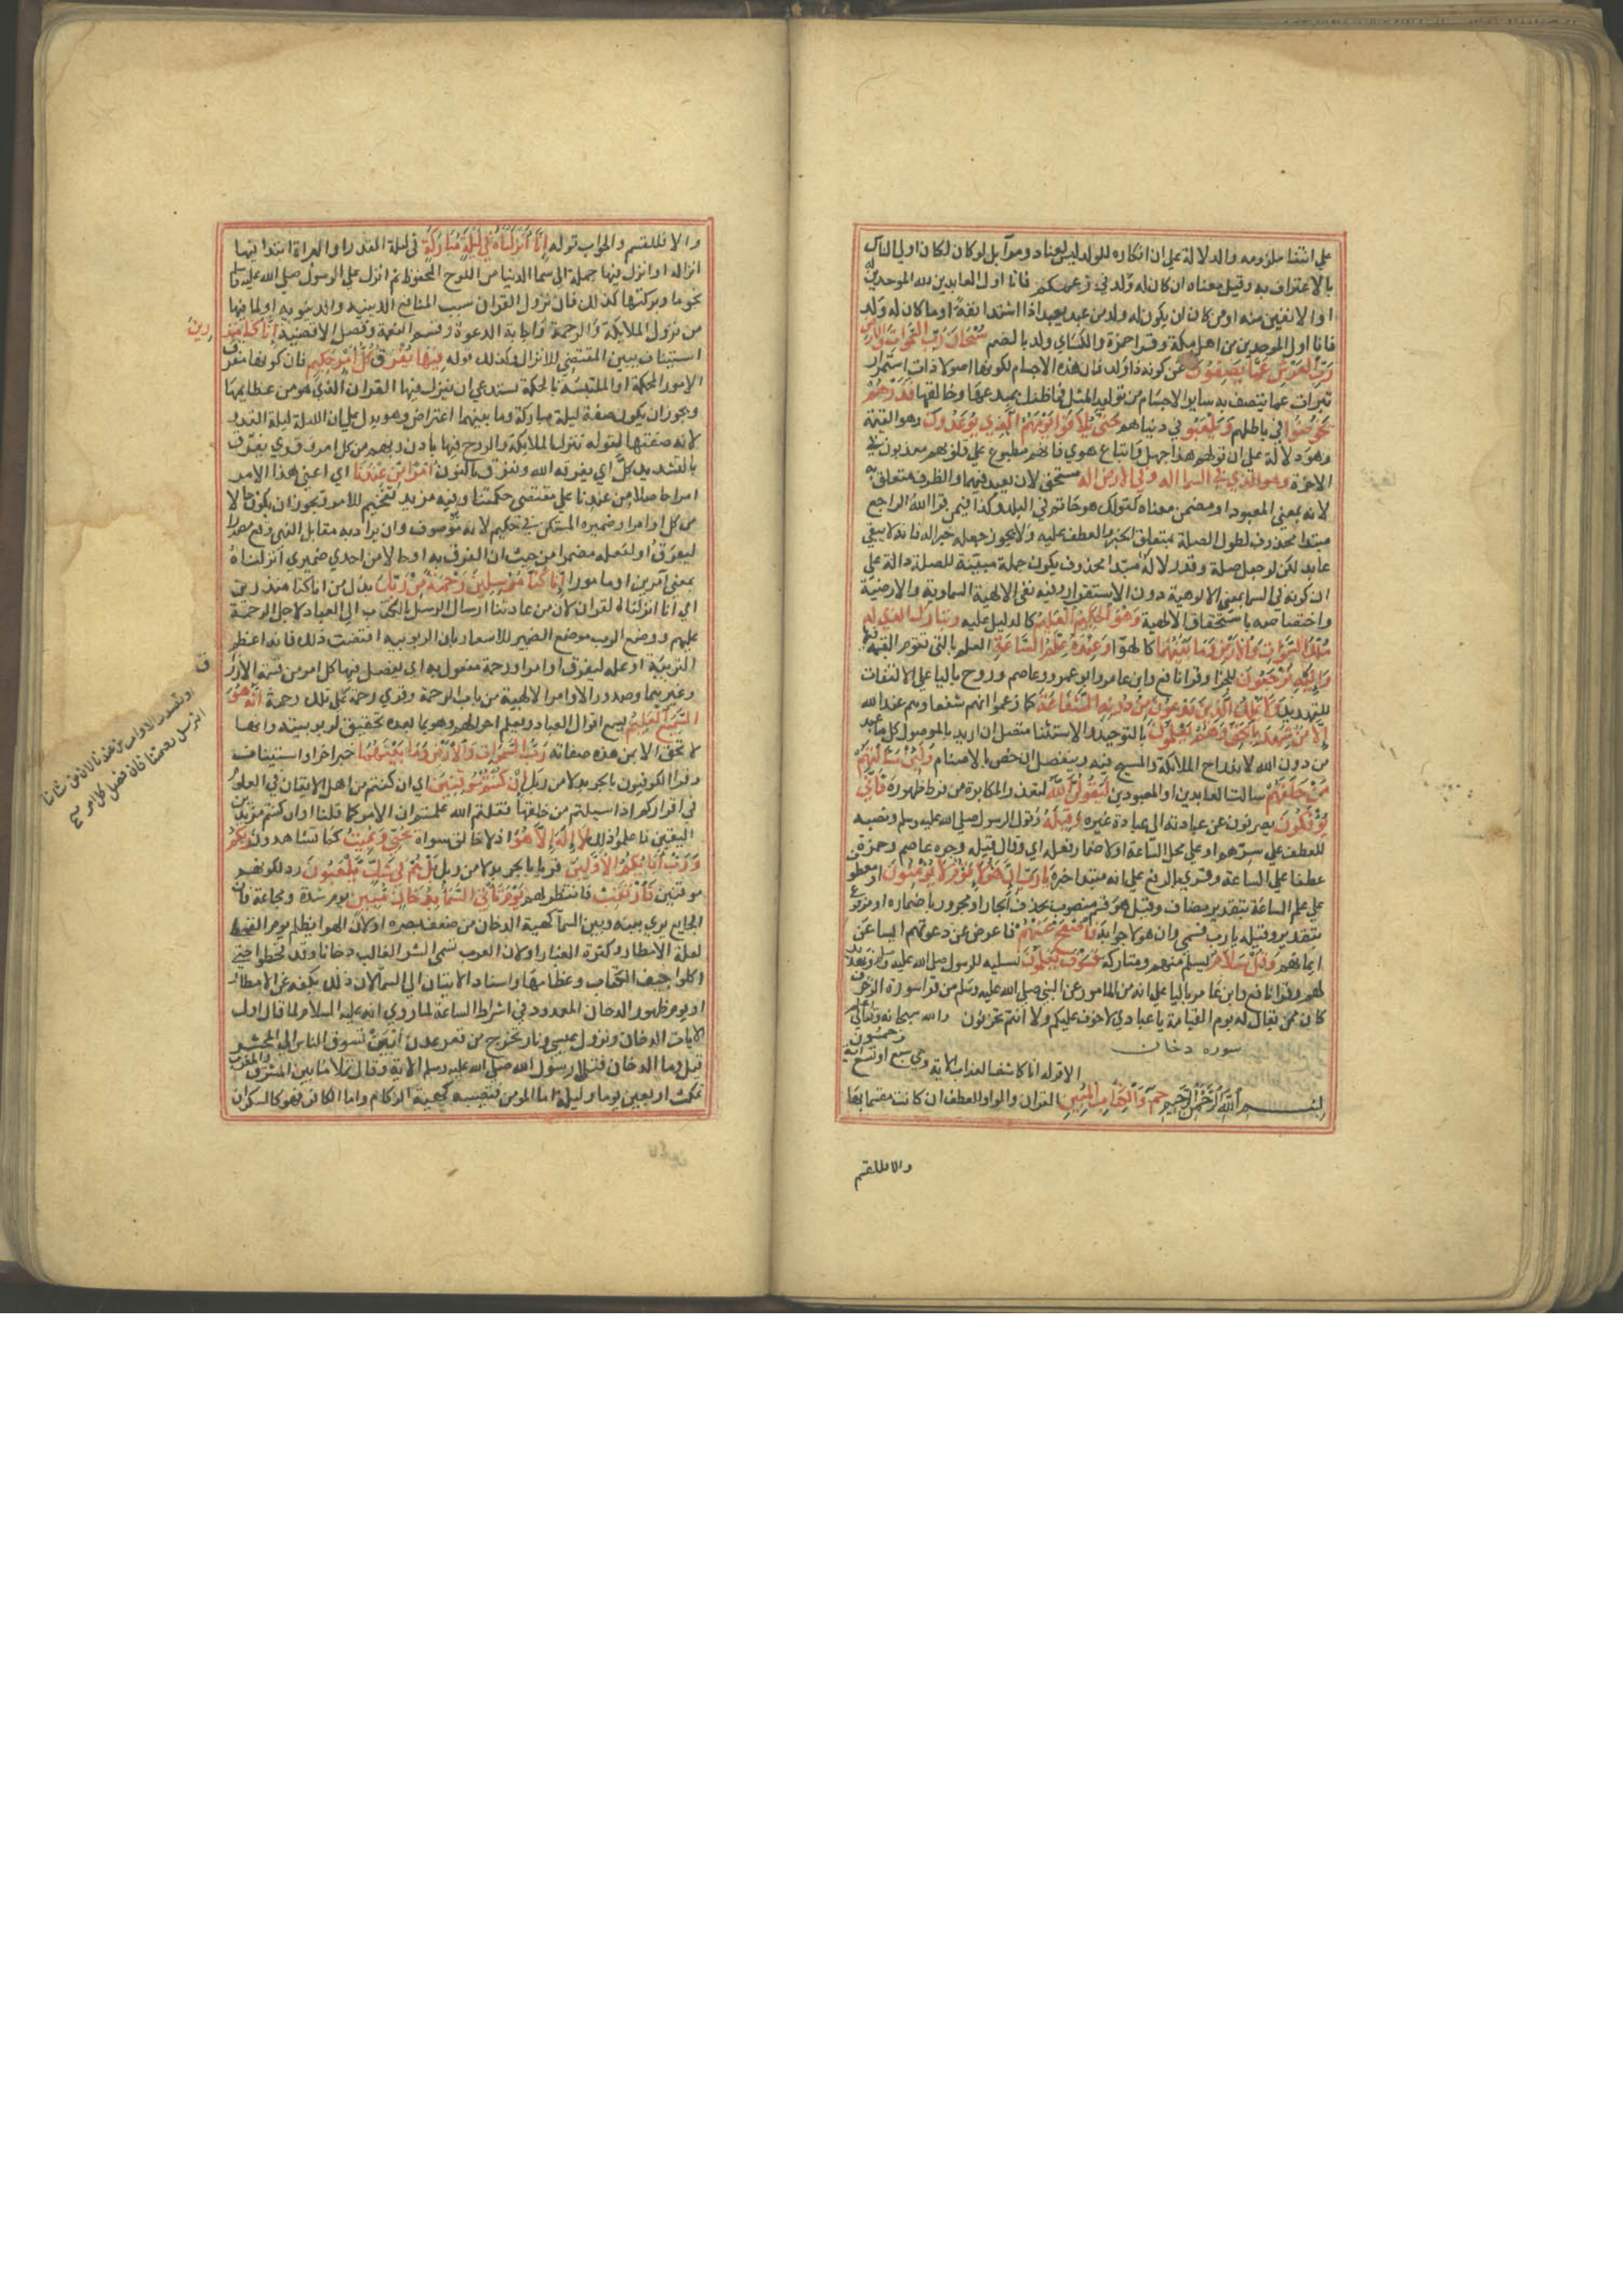 علي انتفا ملزومه والدلالة علي ان انكاره للولد ليس لعناد ومرآ بل لو كان لكان اولي الناس
بالاعتراف به وقيل معناه ان كان له ولد في زعمكم فانا اول العابدين لله الموحدين له
او الانفين منه او من ان يكون له ولد من عبد يعبد اذا اشتد انفه او ما كان له ولد
فانا اول الموحدين من اهل مكة وقرا حمزة والكسائي ولد بالضم سُبْحَانَ رَبِّ السَّمَوَاتِ وَالْاَرْضِ
رَبِّ الْعَرْشِ عَمَّا يَصِفُونَ عن كونه ذا ولد فان هذه الاجسام لكونها اصولا ذات استمرار
تبرات عما يتصف به ساير الاجسام من توليد المثل فما ظنك بمبدعها وخالقها فَذَرْهُمْ
يَخُوضُوا في باطلهم وَيَلْعَبُوا في دنياهم حَتَّى يُلَاقُوا يَوْمَهُمُ الَّذِي يُوعَدُونَ وهو القيمة
وهو دلالة علي ان قولهم هذا جهل واتباع هوي وانهم مطبوع علي قلوبهم معذبون في
الاخرة وهو الذي في السما اله وفي الارض اله مستحق لان يعبد فيهما والظرف متعلق به
لانه بمعني المعبود او متضمن معناه كقولك هو حاتم في البلد وكذا فيمن قرا الله والراجع
مبتدا محذوف لطول الصلة بمتعلق الخبر والعطف عليه ولا يجوز جعله خبرا له فانه لا يبقي
عايد لكن لو جعل صلة وقدر لاله مبتدا محذوف يكون جملة مبينة للصلة دالة علي
ان كونه في السما بمعني الالوهية دون الاستقرار وفيه نفي الالهية السماوية والارضية
واختصاصه باستحقاق الالهية وَهُوَ الْحَكِيمُ الْعَلِيمُ كالدليل عليه وَتَبَارَكَ الذي له
مُلْكُ السَّمَوَاتِ وَالْاَرْضِ وَمَا بَيْنَهُمَا كالهوا وَعِنْدَهُ عِلْمُ السَّاعَةِ العلم بالتي تقوم القيمة فيها
وَإِلَيْهِ تُرْجَعُونَ للجزا وقرا نافع وابن عامر وابو عمرو وعاصم وروح باليا علي الالتفات
للتهديد وَلَا يَمْلِكُ الَّذِينَ يَدْعُونَ مِنْ دُونِهِ الشَّفَاعَةَ كما زعموا انهم شفعاوهم عند الله
إِلَّا مَنْ شَهِدَ بِالْحَقِّ وَهُمْ يَعْلَمُونَ بالتوحيد والاستثنا متصل ان اريد بالموصول كل ما عبد
من دون الله لاندراج الملايكة والمسيح فيه ومنفصل ان خص بالاصنام وَلَئِنْ سَأَلْتَهُمْ
مَنْ خَلَقَهُمْ سالت العابدين او المعبودين لَيَقُولُنَّ اللَّهُ لتعذر المكابرة من فرط ظهوره فَأَنَّى
يُؤْفَكُونَ يصرفون عن عبادته الي عبادة غيره وَقِيلَهُ وقول الرسول صلي الله عليه وسلم ونصبه
للعطف علي سرهم او علي محل الساعة او لاضمار فعله اي وقال قيله وجره عاصم وحمزة
عطفا علي الساعة وقري بالرفع علي انه مبتدا خبره يَا رَبِّ إِنَّ هَؤُلَاءِ قَوْمٌ لَا يُؤْمِنُونَ او معطوف
علي علم الساعة بتقدير مضاف وقيل هو قسم منصوب بحذف الجار او مجرور باضماره او مرفوع
بتقدير وقيله يا رب قسمي وان هولا جوابه فَاصْفَحْ عَنْهُمْ فاعرض عن دعوتهم ايسا عن
ايمانهم وَقُلْ سَلَامٌ تسلم منكم ومتاركة فَسَوْفَ يَعْلَمُونَ تسليه للرسول صلي الله عليه وسلم وتهديد
لهم وقرا نافع وابن عامر بالتا علي انه من المامور عن النبي صلي الله عليه وسلم من قرا سورة الزخرف
كان ممن يقال له يوم القيامة يا عبادي لا خوف عليكم ولا انتم تحزنون والله سبحانه وتعالي اعلم
سوره دخان
الا قوله انا كاشفوا العذاب الاية وهي سبع او تسع وخمسون اية
بِسْمِ اللَّهِ الرَّحْمَنِ الرَّحِيمِ حم وَالْكِتَابِ الْمُبِينِ القران والواو للعطف ان كانت مقسما بها
والا فللقسم
والا فللقسم والجواب قوله إِنَّا أَنْزَلْنَاهُ فِي لَيْلَةٍ مُبَارَكَةٍ في ليلة القدر او البراة ابتدا فيها
انزاله او انزل فيها جملة الي سما الدنيا من اللوح المحفوظ ثم انزل علي الرسول صلي الله عليه وسلم
نجوما وبركتها كذلك فان نزول القران سبب المنافع الدينيه والدنيويه او لما فيها
من نزول الملايكة والرحمة واجابة الدعوة وقسم النعمة وفصل الاقضية إِنَّا كُنَّا مُنْذِرِينَ
استيناف يبين المقتضي للانزال وكذلك قوله فِيهَا يُفْرَقُ كُلُّ أَمْرٍ حَكِيمٍ فان كونها مفرق
الامور المحكمة او الملتبسة بالحكمة يستدعي ان ينزل فيها القران الذي هو من عظايمها
ويجوز ان يكون صفة ليلة مباركة وما بينهما اعتراض وهو يدل علي ان الليلة ليلة القدر
لانه صفتها لقوله تنزل الملايكة والروح فيها باذن ربهم من كل امر وقري يفرق
بالتشديد كلَّ اي يفرقه الله ونفرق بالنون أَمْرًا مِنْ عِنْدِنَا اي اعني هذا الامر
امرا حاصلا من عندنا علي مقتضي حكمتنا وفيه مزيد تفخيم للامر ويجوز ان يكون حالا
من كل او امر او ضميره المستكن في حكيم لانه موصوف وان يراد به مقابل النهي وقع مصدرا
ليفرق او لفعله مضمرا من حيث ان الفرق به او حالا من احدي ضميري انزلناه
بمعني آمرين او مامورا إِنَّا كُنَّا مُرْسِلِينَ رَحْمَةً مِنْ رَبِّكَ بدل من انا كنا منذرين
اي انا انزلنا القران لان من عادتنا ارسال الرسل بالكتب الي العباد لاجل الرحمة
عليهم ووضع الرب موضع الضمير للاشعار بان الربوبيه اقتضت ذلك فانه اعظم
التربية او علة ليفرق او امرا ورحمة مفعول به اي يفصل فيها كل امر من قسمة الارزاق
وغيرها وصدور الاوامر الالهية من باب الرحمة وقري رحمة علي تلك رحمة إِنَّهُ هُوَ
السَّمِيعُ الْعَلِيمُ يسمع اقوال العباد ويعلم احوالهم وهو بما بعده تحقيق لربوبيته وانها
لا تحق الا لمن هذه صفاته رَبِّ السَّمَوَاتِ وَالْأَرْضِ وَمَا بَيْنَهُمَا خبر اخر او استيناف
وقرا الكوفيون بالجر بدلا من ربك إِنْ كُنْتُمْ مُوقِنِينَ اي ان كنتم من اهل الايقان في العلوم
في اقراركم اذا اسيلتم من خلقها فقلتم الله علمتم ان الامر كما قلنا او ان كنتم مريدين
اليقين فاعلموا ذلك لَا إِلَهَ إِلَّا هُوَ اذ لا خالق سواه يُحْيِي وَيُمِيتُ كما تشاهدون رَبُّكُمْ
وَرَبُّ آبَائِكُمُ الْأَوَّلِينَ قريا بالجر بدلا من ربك بَلْ هُمْ فِي شَكٍّ يَلْعَبُونَ رد لكونهم
موقنين فَارْتَقِبْ فانتظر لهم يَوْمَ تَأْتِي السَّمَاءُ بِدُخَانٍ مُبِينٍ يوم شدة ومجاعة فان
الجايع يري بينه وبين السما كهيية الدخان من ضعف بصره او لان الهوا يظلم يوم القحط
لقلة الامطار وكثرة الغبار او لان العرب تسمي الشر الغالب دخانا وقد قحطوا حتي
اكلوا جيف الكلاب وعظامها واسناد الاتيان الي السما لان ذلك يكفه عن الامطار
او يوم ظهور الدخان المعدود في اشراط الساعة لما روي انه عليه السلام لما قال اول
الايات الدخان ونزول عيسي ونار تخرج من قعر عدن ابين تسوق الناس الي المحشر
قيل وما الدخان فتلا رسول الله صلي الله عليه وسلم الاية وقال يملا ما بين المشرق والمغرب
يمكث اربعين يوما وليلة اما المومن فيصيبه كهيية الزكام واما الكافر فهو كالسكران
او تصدر الاوامر من عندنا لان من شاننا
ان نرسل رحمتنا فان فصل كل امر